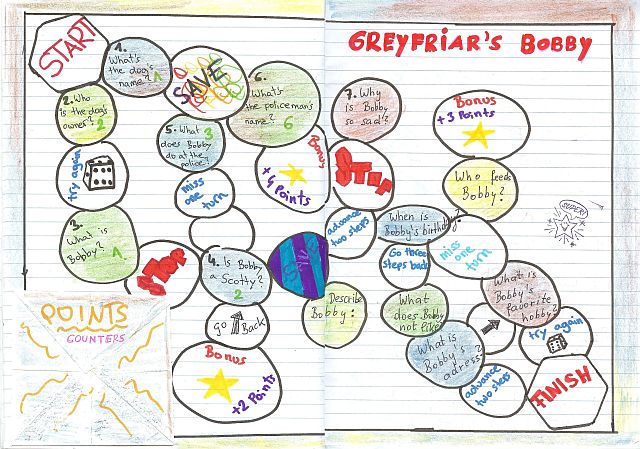 GREYFRIAR'S BOBBY
START
1.
What's
the dog's
name? 1
SAVE
2. Who
is the dog's
owner? 2
try again
3. What is
Bobby?
1
STOP
4. Is Bobby
a Scotty?
2
go Back
Bonus
+2 Points
miss
one
turn
5. What 3
does Bobby
do at the
police?
6.
What's
the policeman's
name?
6
Bonus
+4 Points
7. Why
is Bobby
so sad?
STOP
advance
two steps
Describe
Bobby:
When is
Bobby's birthday?
Go three
steps back
What
does Bobby
not like?
What is
Bobby's
adress?
advance
two steps
Bonus
+3 Points
Who feeds
Bobby?
miss one
turn
SUPER!
What is
Bobby's
faborite
hobby?
try again
FINISH
POINTS
COUNTERS